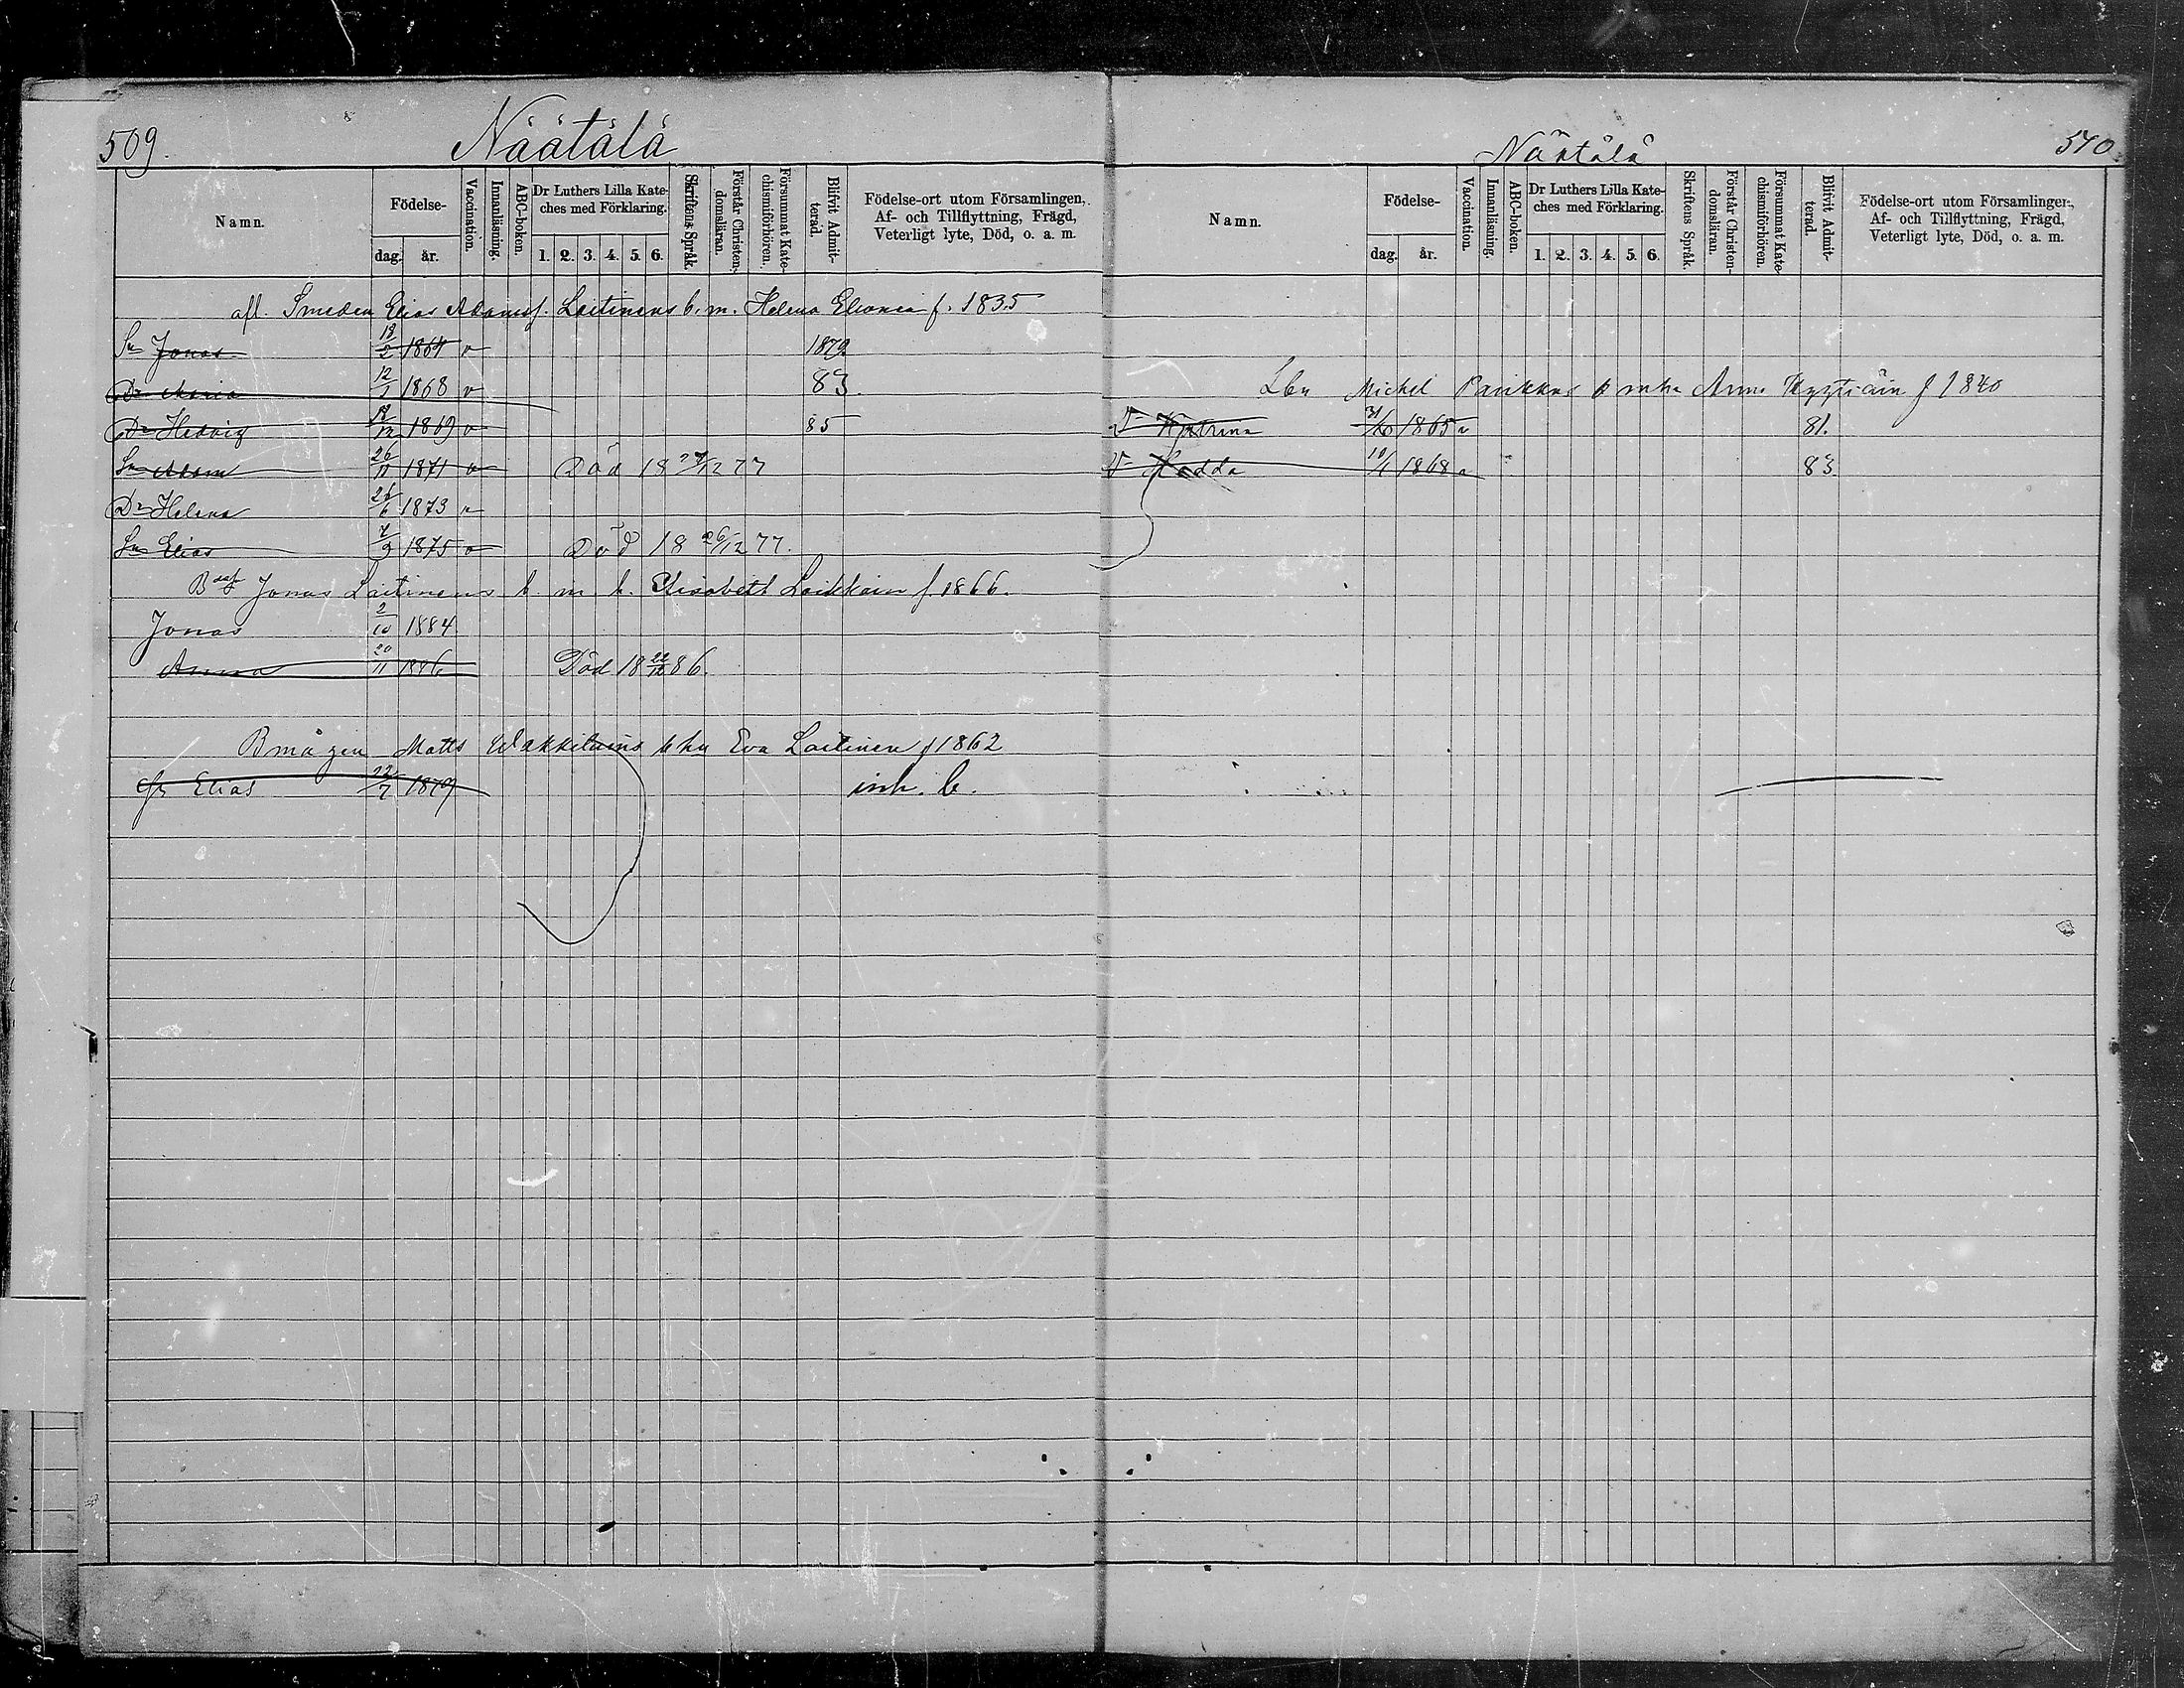 509.
Näätälä
Namn.
Födelse-
dag. år.
Vaccination.
Innanläsning.
ABC-boken.
Dr Luthers Lilla Kate-
ches med Förklaring.
1. 2. 3. 4. 5. 6.
Skriftens Språk.
Förstår Christen-
domsläran.
Försummat Kate-
chismiförhören.
Blifvit Admit-
terad.
Födelse-ort utom Församlingen,
Af- och Tillflyttning, Frägd,
Veterligt lyte, Död, o. a. m.
afl. Smeden Elias Adamsf. Laitinens b. m. Helena f. 1835
Sn Jonas 18/2 1864 v 1879.
Dr Maria 12/1 1868 v 83.
Dr Hedvig 1869 v 85
Sn Adam 26/11 1871 v Död 18 27/12 77
Dr Helena 26/6 1873 v
Sn Elias 7/9 1875 v Död 18 26/12 77.
Jonas Laitinens b. m. h. Elisabeth f 1866.
Jonas 2/10 1884.
Anna 20/11 1886 Död 18 22/12 86.
Bmågen Matts Eva Laitinen f 1862
Elias 22/7 1879 inh. b.
Näätälä
510.
Namn.
Födelse-
dag. år.
Vaccination.
Innanläsning.
ABC-boken.
Dr Luthers Lilla Kate-
ches med Förklaring.
1. 2. 3. 4. 5. 6.
Skriftens Språk.
Förstår Christen-
domsläran.
Försummat Kate-
chismiförhören.
Blifvit Admit-
terad.
Födelse-ort utom Församlingen,
Af- och Tillflyttning, Frägd,
Veterligt lyte, Död, o. a. m.
Lbn Michel Parikkas b mhu Anna f 1840
Katrina 31/10 1865 v 81.
Hedda 10/1 1868 v 83.